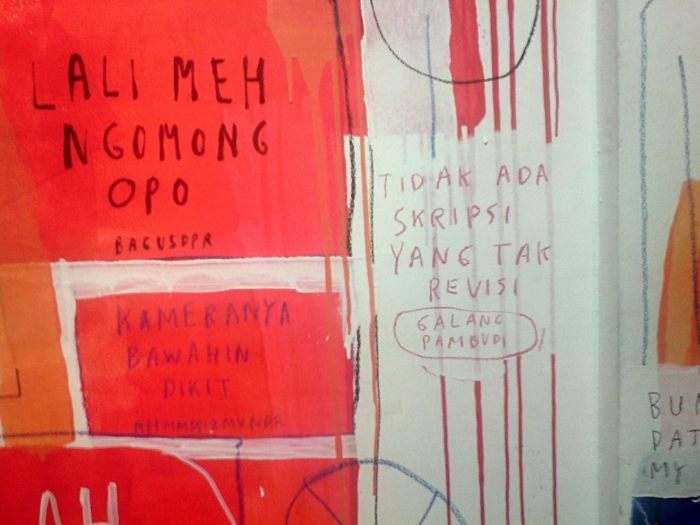 LALI MEH
NGOMONG
OPO
BAGUSDPR
KAMERANYA
BAWAHIN
DIKIT
TIDAK ADA
SKRIPSI
YANG TAK
REVISI
GALANG
PAMBUDI
AH
MY